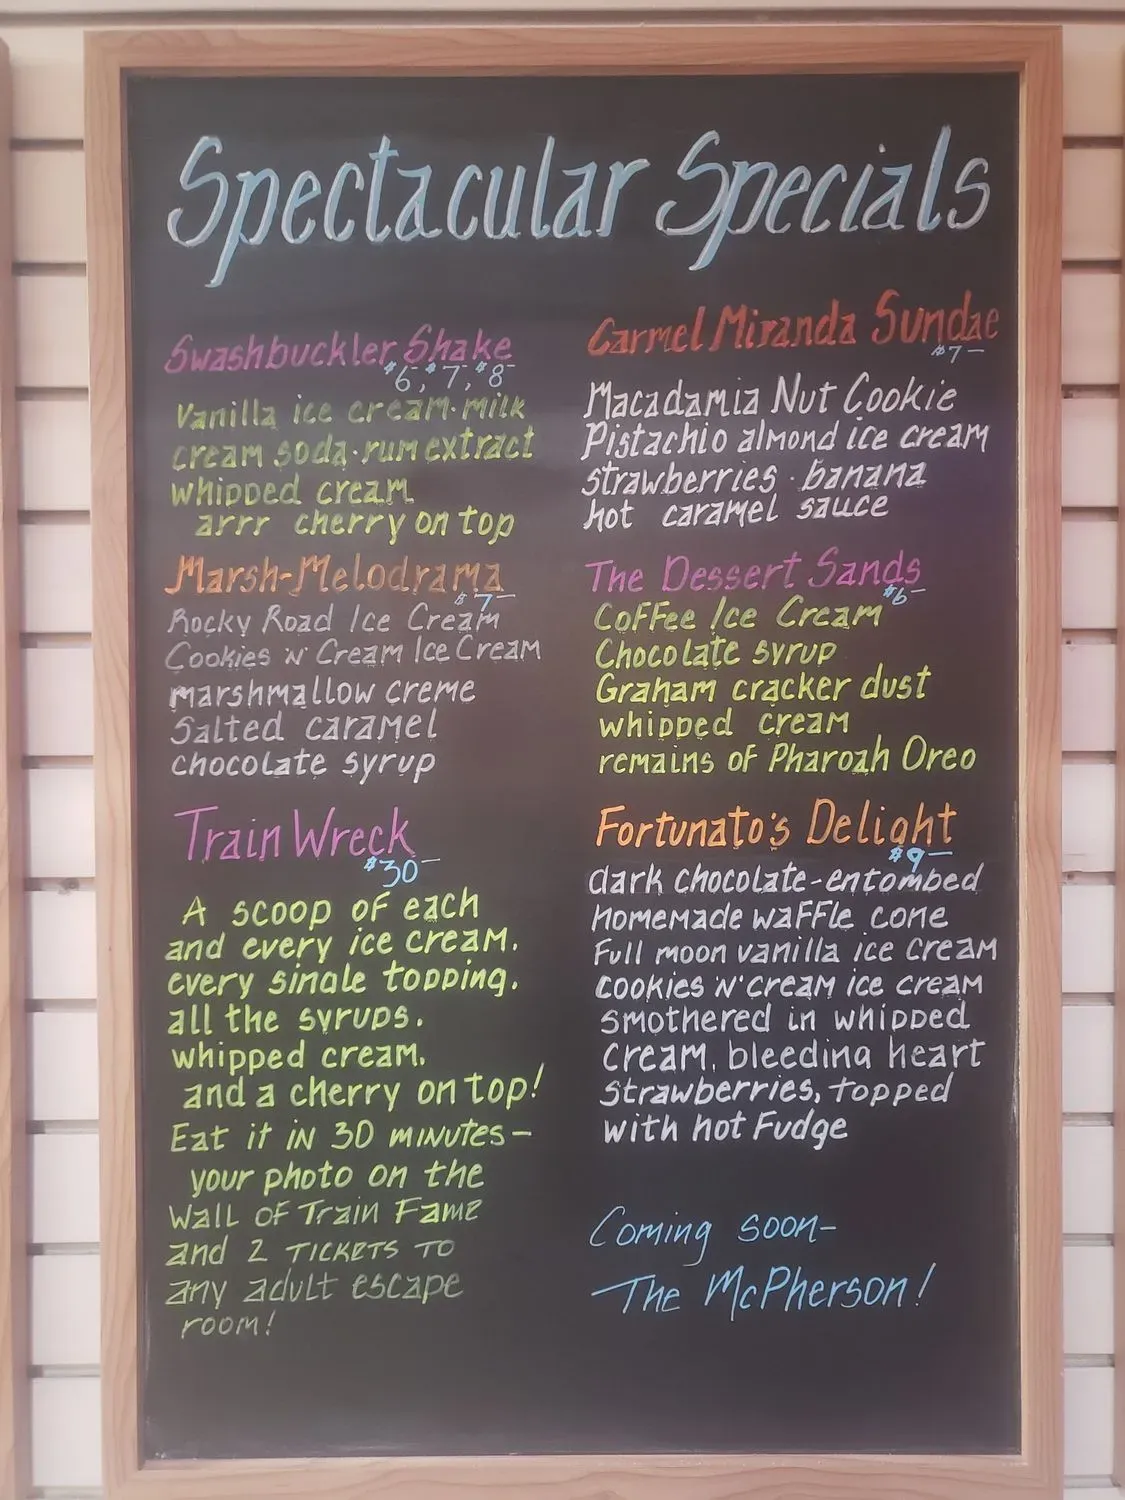 Spectacular Specials
Swashbuckler Shake
$6, $7, $8-
Vanilla ice cream · milk
cream soda · rum extract
whipped cream
arrr cherry on top
Marsh-Melodrama
$7-
Rocky Road Ice Cream
Cookies 'n' Cream Ice Cream
marshmallow creme
Salted caramel
chocolate syrup
Train Wreck
$30-
A scoop of each
and every ice cream.
every single topping.
all the syrups.
whipped cream.
and a cherry on top!
Eat it in 30 minutes-
your photo on the
Wall of Train Fame
and 2 tickets to
any adult escape
room!
Carmel Miranda Sundae
$7-
Macadamia Nut Cookie
Pistachio almond ice cream
strawberries · banana
hot caramel sauce
The Dessert Sands
$6-
Coffee Ice Cream
Chocolate syrup
Graham cracker dust
whipped cream
remains of Pharoah Oreo
Fortunato's Delight
$9-
dark chocolate-entombed
homemade waffle cone
Full moon vanilla ice cream
cookies n' cream ice cream
smothered in whipped
cream, bleeding heart
strawberries, topped
with hot fudge
Coming soon-
The McPherson!